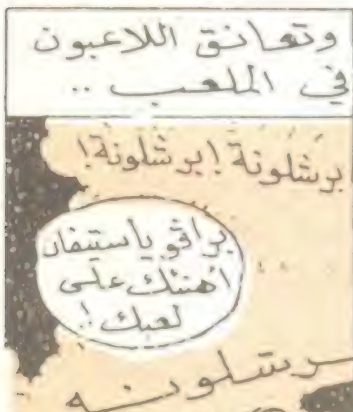 وتعانق اللاعبون
في الملعب ..
برشلونة ! برشلونة !
براڤو ياستيفان
اهنئك على
لعبك !
برشلونه